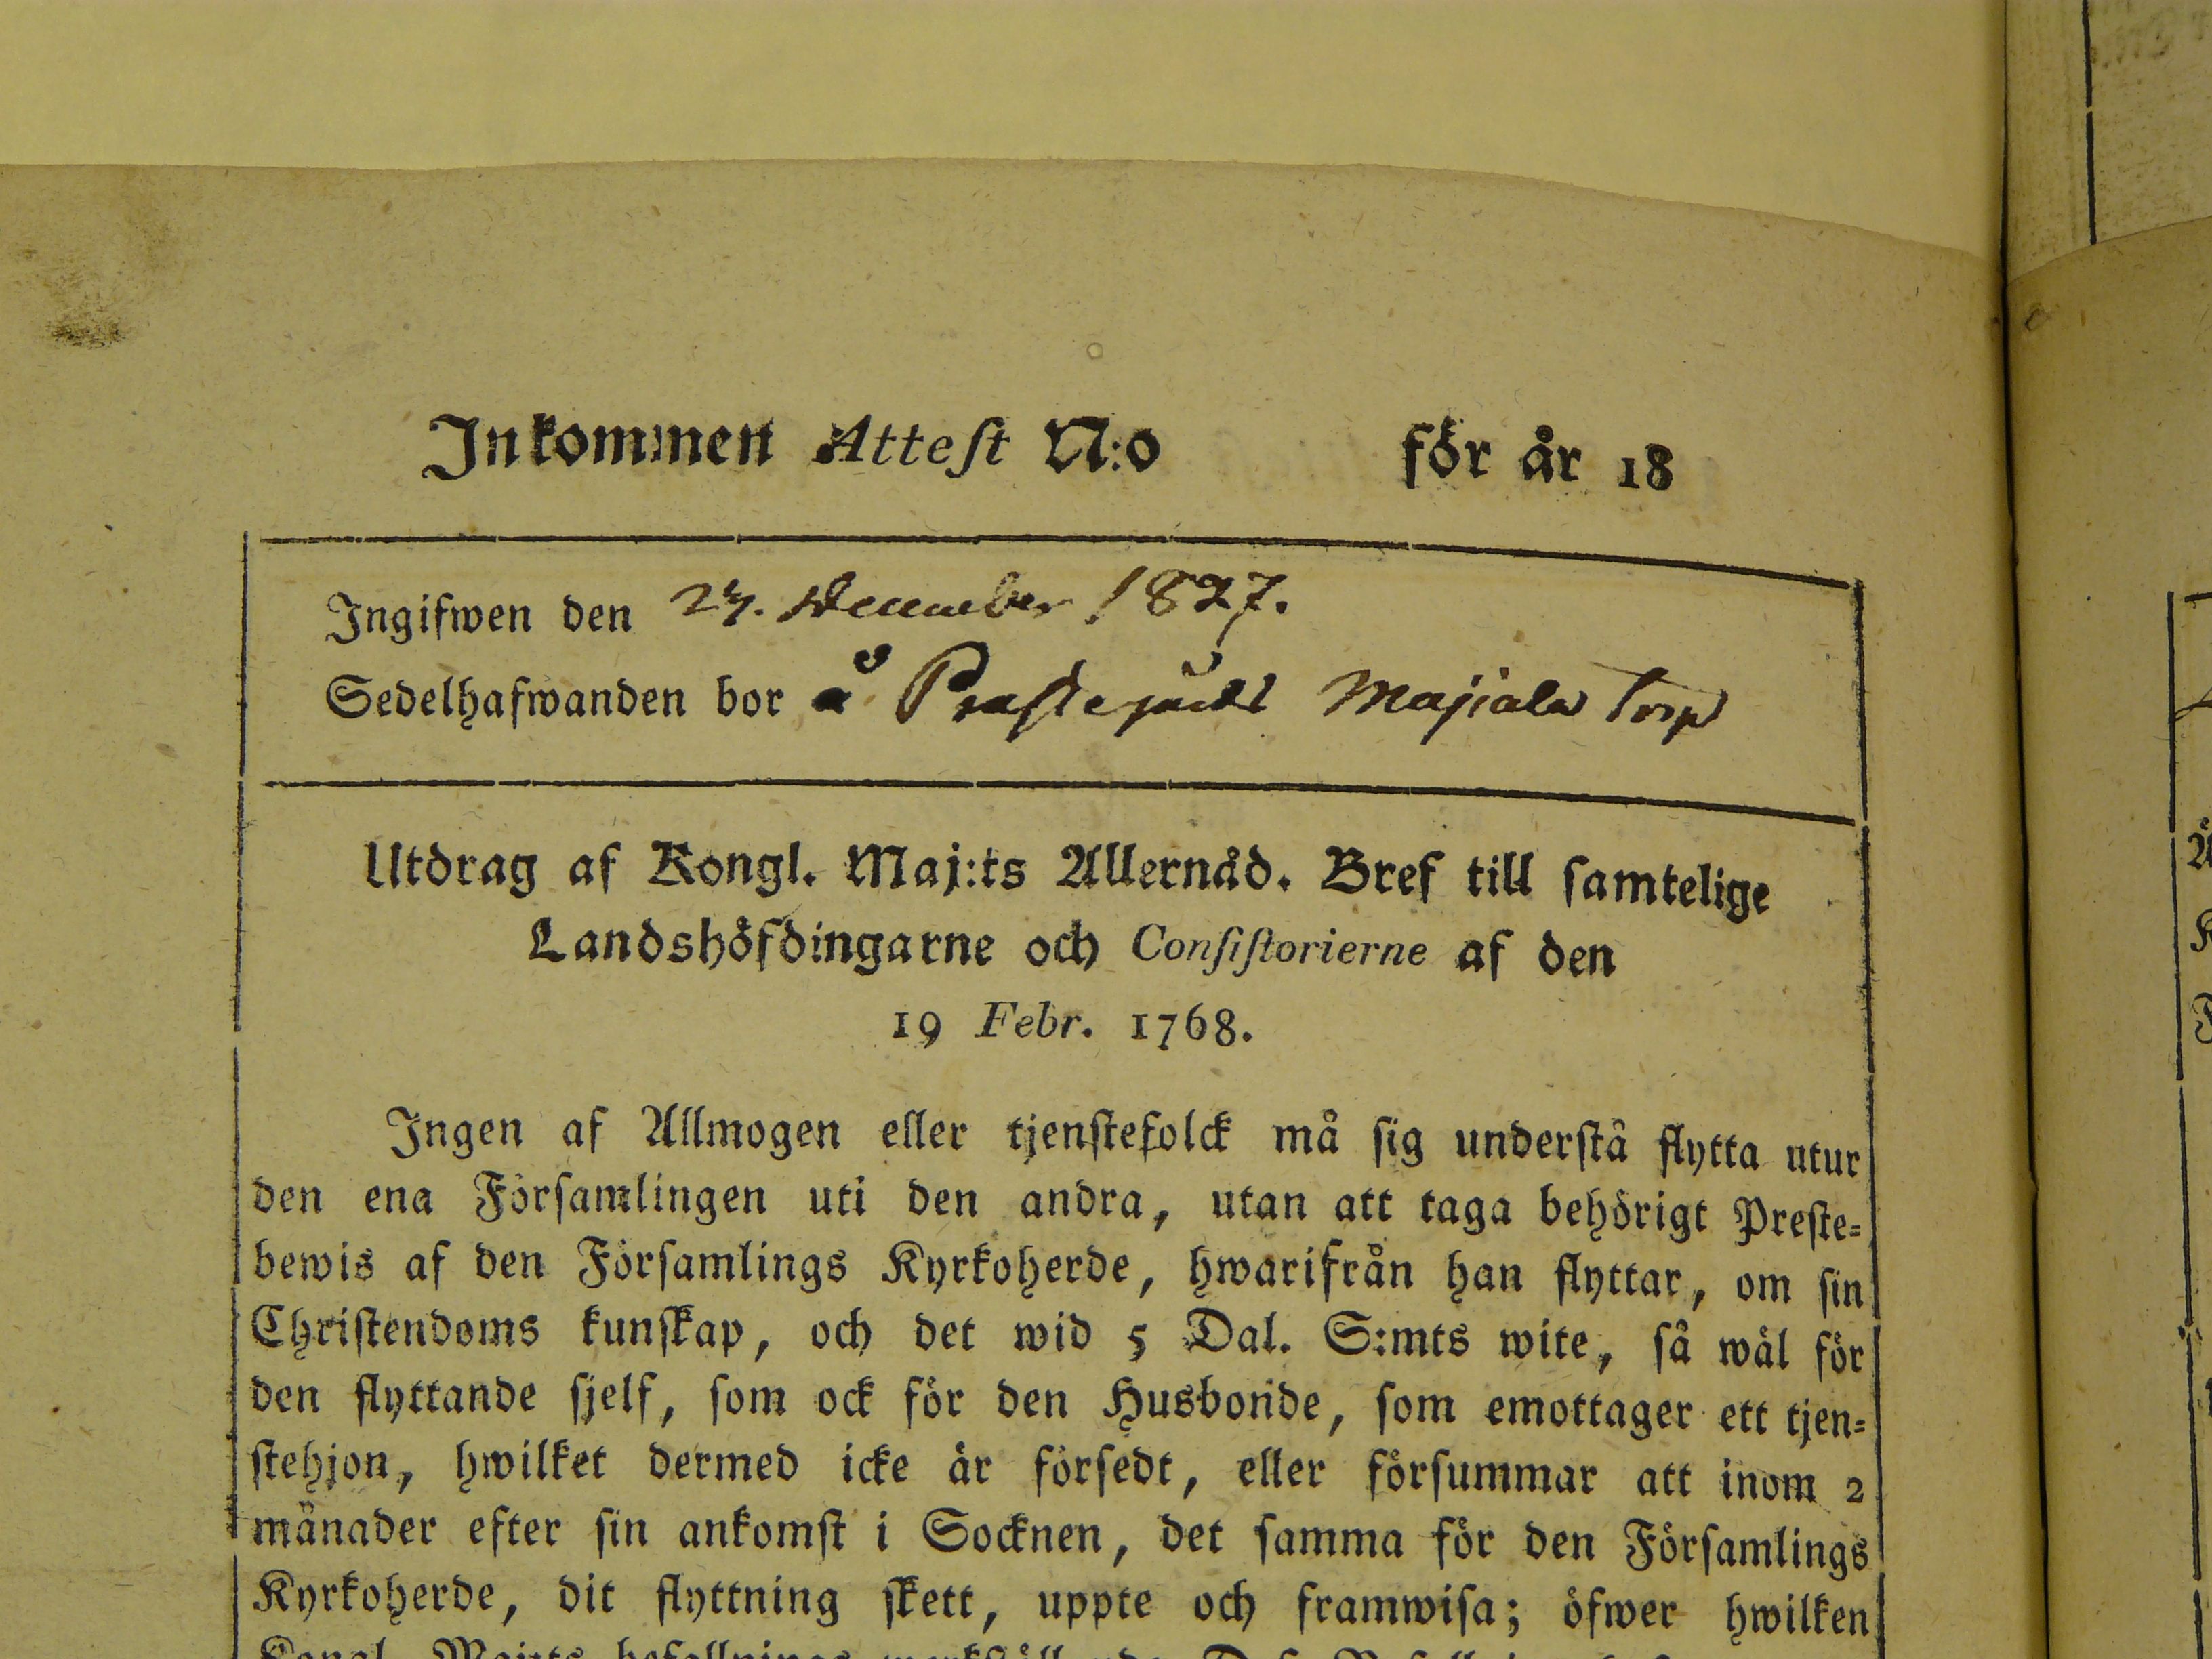 Inkommen Attest N:o för år 18
Ingifwen den 27. December 1827.
Sedelhafwanden bor å Torp
Utdrag af Kongl. Maj:ts Allernåd. Bref till samtelige
Landshöfdingarne och Consistorierne af den
19 Febr. 1768.
Ingen af Allmogen eller tjenstefolck må sig understå flytta utur
den ena Församlingen uti den andra, utan att taga behörigt Preste-
bewis af den Församlings Kyrkoherde, hwarifrån han flyttar, om sin
Christendoms kunskap, och det wid 5 Dal. S:mts wite, så wäl för
den flyttande sjelf, som ock för den Husbonde, som emottager ett tjen-
stehjon, hwilket dermed icke är försedt, eller försummar att inom 2
månader efter sin ankomst i Socknen, det samma för den Församlings
Kyrkoherde, dit flyttning skett, uppte och framwisa; öfwer hwilken